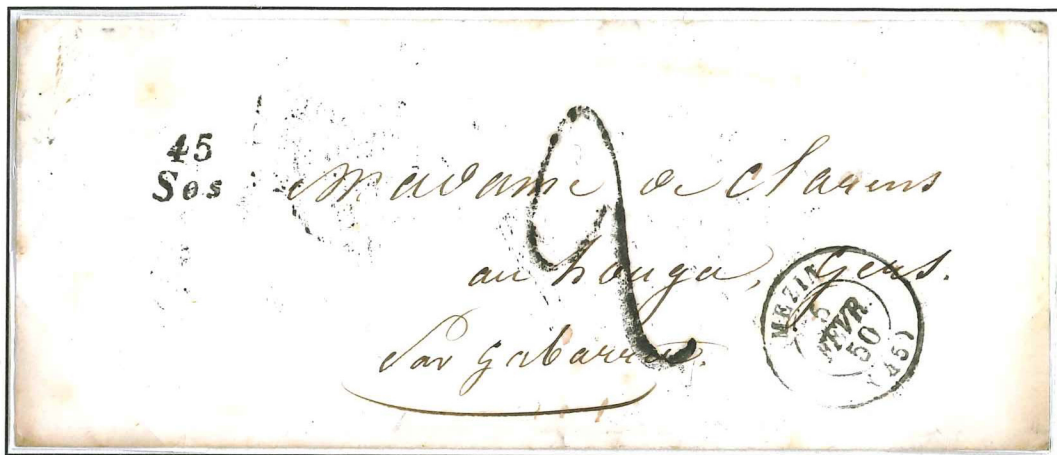 45
Sos
Madame de Clarens
au houga, Gers.
Par Gabarret.
2
MEZIN
5
FEVR.
50
(45)